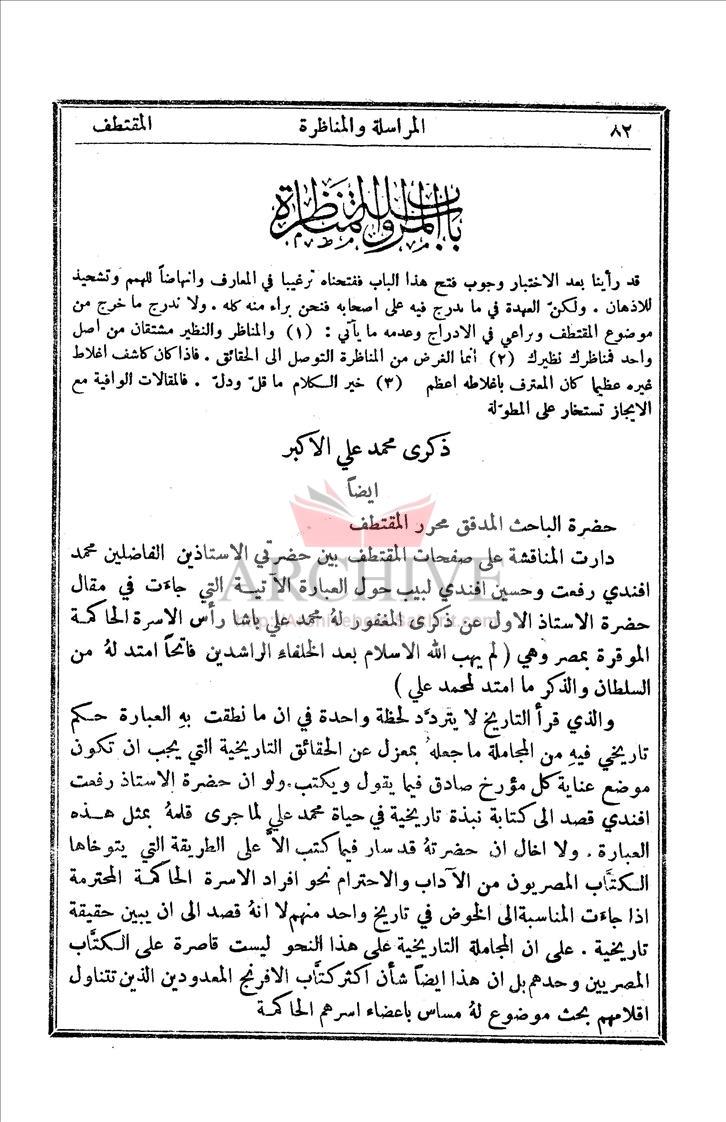 ٨٢ المراسلة والمناظرة المقتطف
باب المراسلة والمناظرة
قد رأينا بعد الاختبار وجوب فتح هذا الباب ففتحناه ترغيبا في المعارف وانهاضاً للهمم وتشحيذ
للاذهان . ولكنّ العهدة في ما يدرج فيه على اصحابه فنحن براء منه كله . ولا ندرج ما خرج عن
موضوع المقتطف ونراعي في الادراج وعدمه ما يأتي : (١) والمناظر والنظير مشتقان من أصل
واحد فمناظرك نظيرك (٢) انما الغرض من المناظرة التوصل الى الحقائق . فاذا كان كاشف اغلاط
غيره عظيما كان المعترف باغلاطه اعظم (٣) خير الكلام ما قلّ ودلّ . فالمقالات الوافية مع
الايجاز تستخار على المطوّلة
ذكرى محمد علي الاكبر
ايضاً
حضرة الباحث المدقق محرر المقتطف
دارت المناقشة على صفحات المقتطف بين حضرتي الاستاذين الفاضلين محمد
ARCHIVE
افندي رفعت وحسين افندي لبيب حول العبارة الآتية التي جاءت في مقال
حضرة الاستاذ الاول عن ذكرى المغفور لهُ محمد علي باشا رأس الاسرة الحاكمة
الموقرة بمصر وهي ( لم يهب الله الاسلام بعد الخلفاء الراشدين فاتحاً امتد لهُ من
السلطان والذكر ما امتد لمحمد علي )
والذي قرأ التاريخ لا يتردَّد لحظة واحدة في ان ما نطقت بهِ العبارة حكم
تاريخي فيهِ من المجاملة ما جعلهُ بمعزل عن الحقائق التاريخية التي يجب ان تكون
موضع عناية كل مؤرخ صادق فيما يقول ويكتب . ولو ان حضرة الاستاذ رفعت
افندي قصد الى كتابة نبذة تاريخية في حياة محمد علي لما جرى قلمهُ بمثل هذه
العبارة . ولا اخال ان حضرتهُ قد سار فيما كتب الاَّ على الطريقة التي يتوخاها
الكتَّاب المصريون من الآداب والاحترام نحو افراد الاسرة الحاكمة المحترمة
اذا جاءت المناسبة الى الخوض في تاريخ واحد منهم لا انهُ قصد الى ان يبين حقيقة
تاريخية . على ان المجاملة التاريخية على هذا النحو ليست قاصرة على الكتَّاب
المصريين وحدهم بل ان هذا ايضاً شأن اكثر كتَّاب الافرنج المعدودين الذين تتناول
اقلامهم بحث موضوع لهُ مساس باعضاء اسرهم الحاكمة